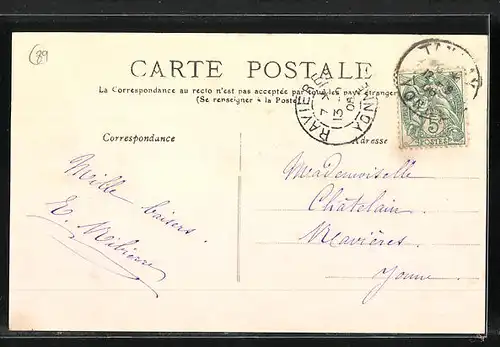 89
CARTE POSTALE
La Correspondance au recto n'est pas acceptée par tous les pays étrangers
(Se renseigner à la Poste)
RAVIÈRES
7
13
05
YONNE
5
Correspondance
Adresse
Mille baisers.
Mademoiselle
Châtelain
Ravières
Yonne